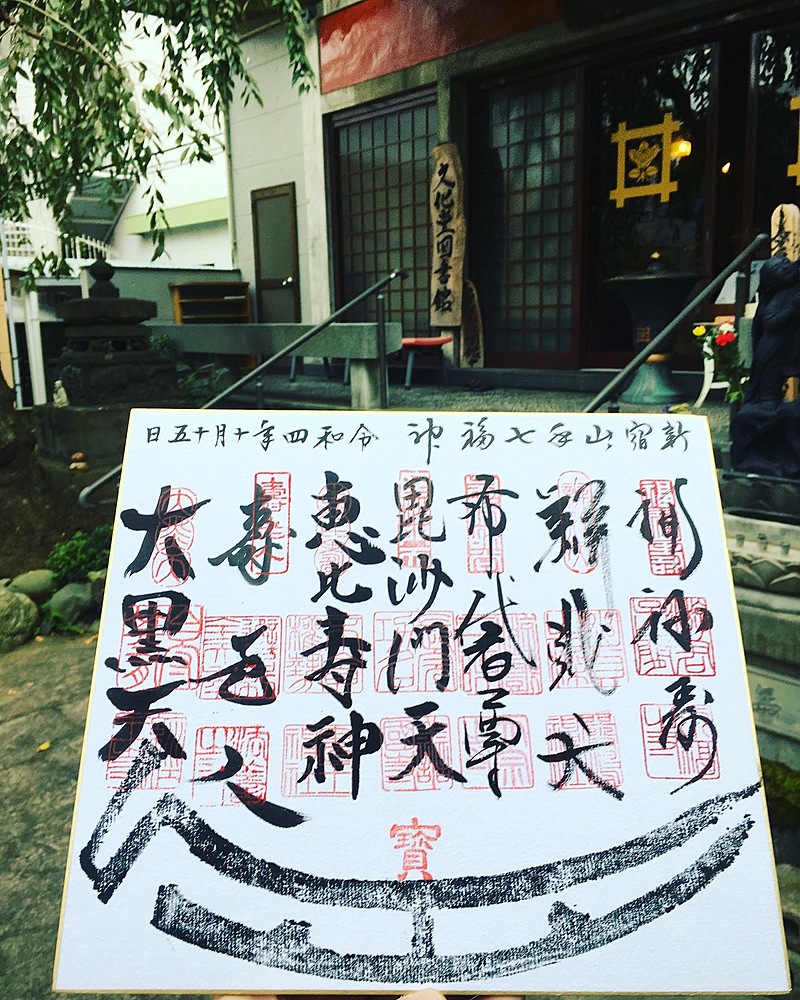 文化図書館
新宿山手七福神 令和四年十月十五日
福禄寿
辨財天
布袋尊
毘沙門天
恵比寿神
壽老人
大黒天
寶